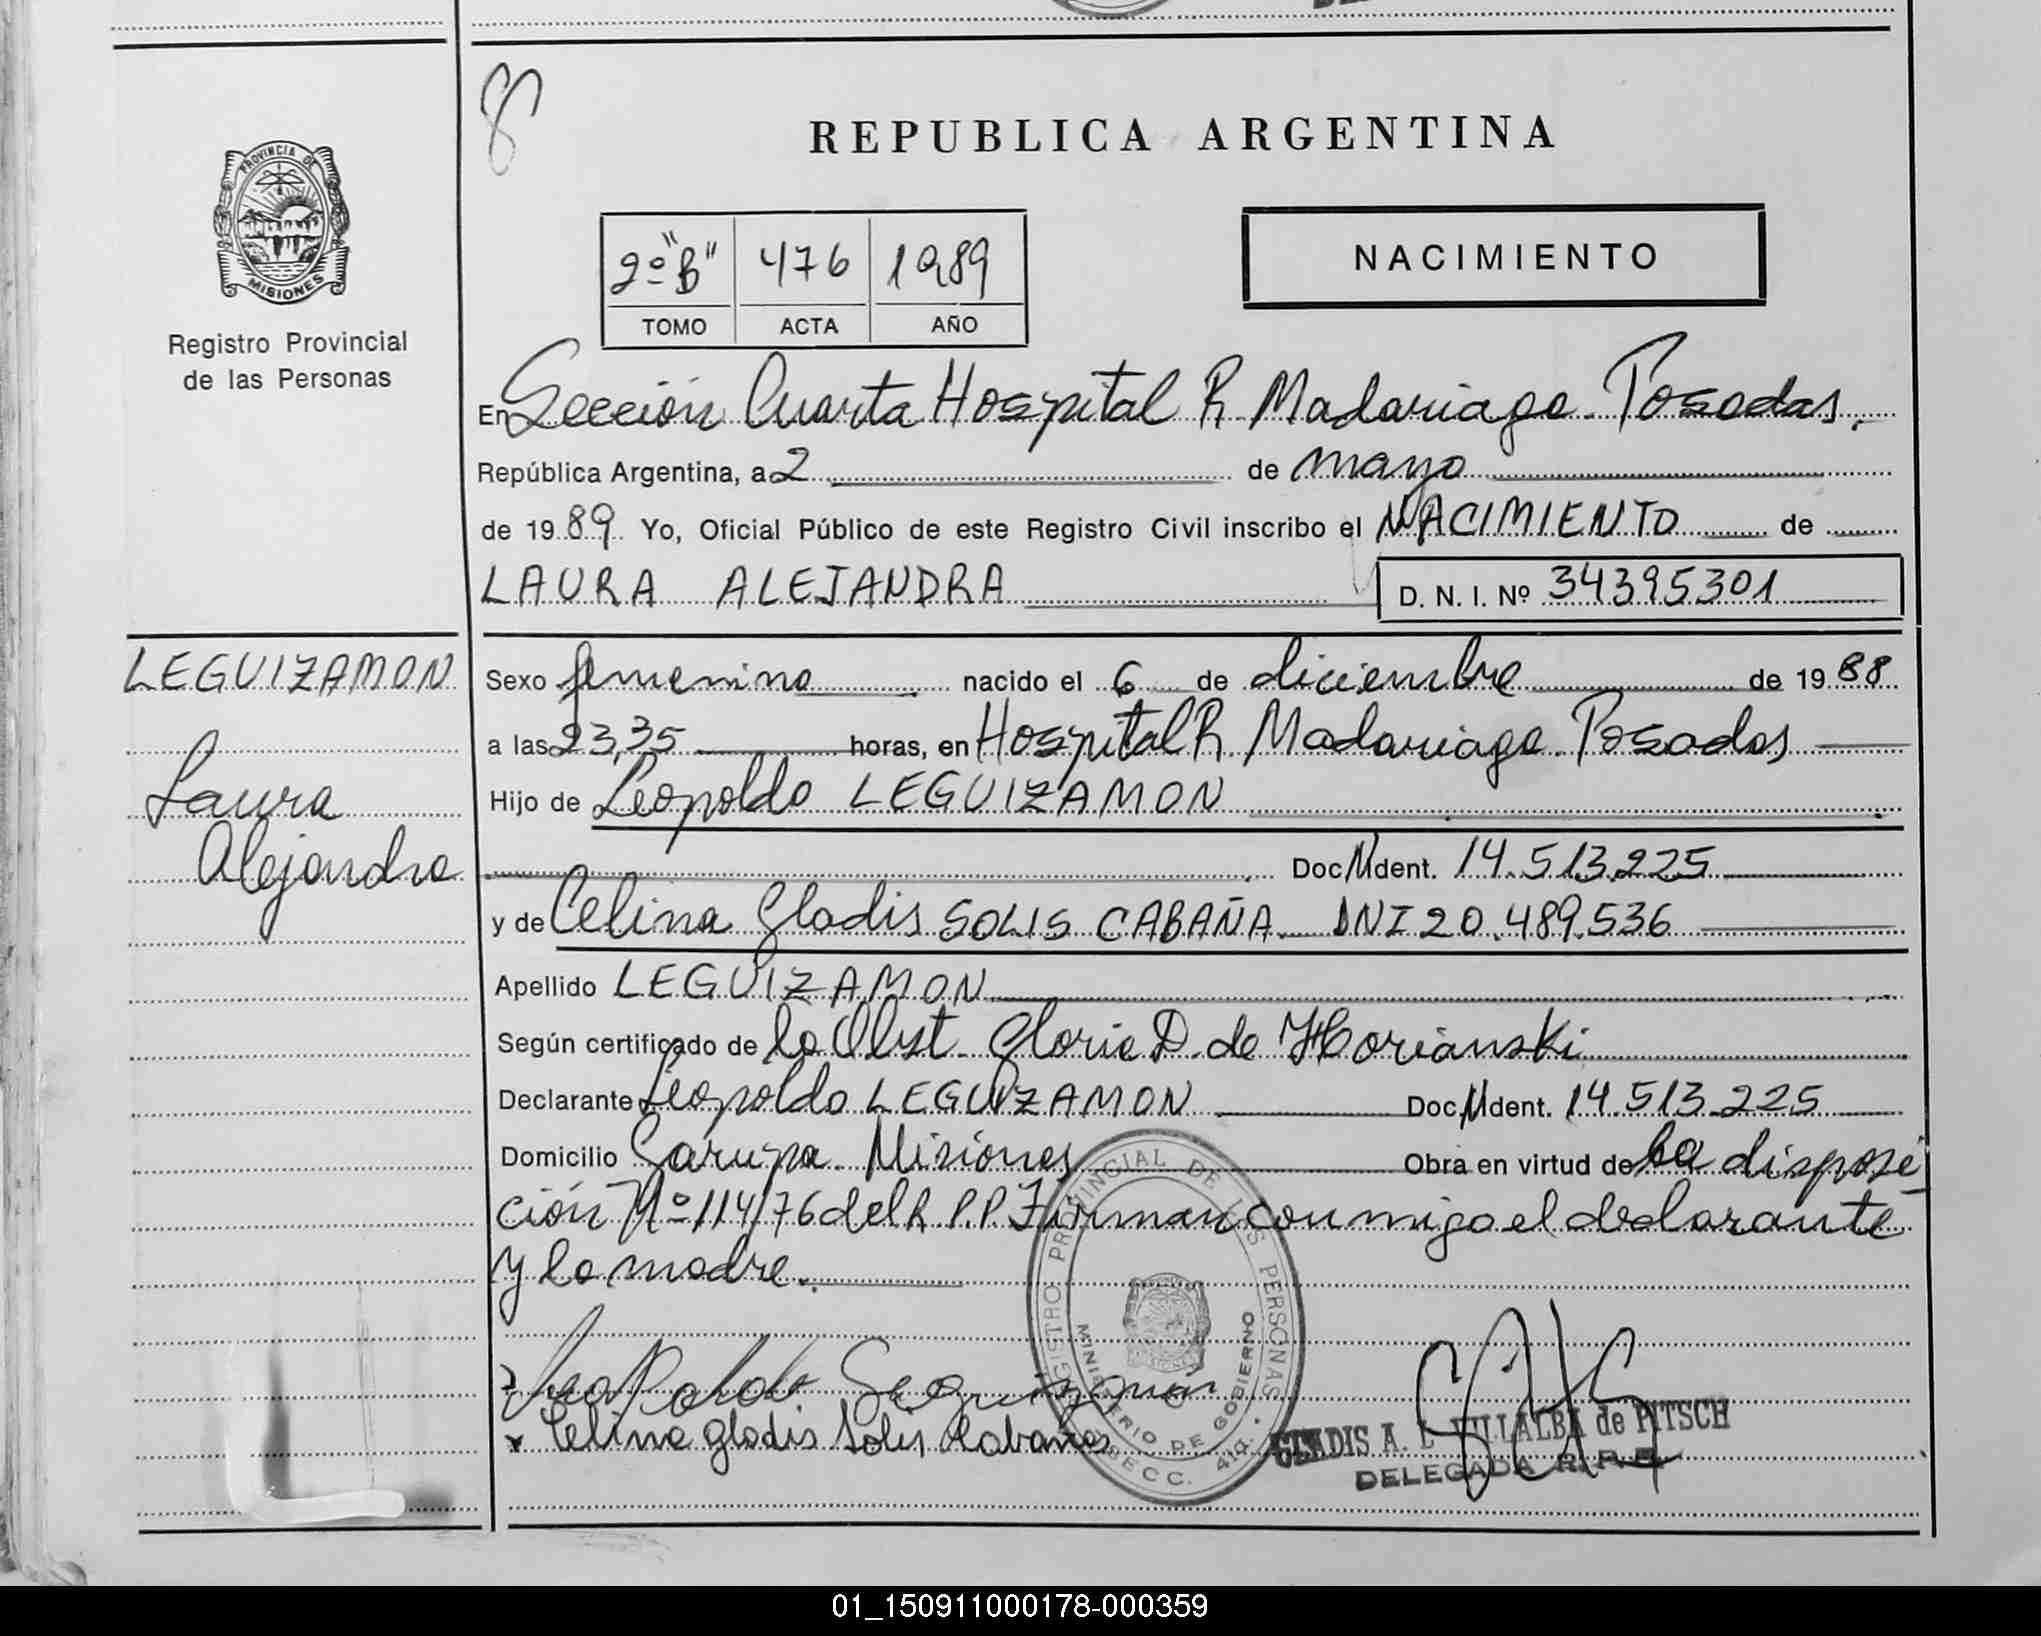 8
REPUBLICA ARGENTINA
PROVINCIA DE
MISIONES
Registro Provincial
de las Personas
2º "B" 476 1989
TOMO ACTA AÑO
NACIMIENTO
En Sección Cuarta Hospital R Madariaga Posadas.
República Argentina, a 2 de mayo
de 1989 Yo, Oficial Público de este Registro Civil inscribo el NACIMIENTO de
LAURA ALEJANDRA D. N. I. Nº 34395301
LEGUIZAMON
Laura
Alejandra
Sexo femenino nacido el 6 de diciembre de 1988
a las 23,35 horas, en Hospital R Madariaga Posadas
Hijo de Leopoldo LEGUIZAMON
Doc. N. Ident. 14.513.225
y de Celina Gladis SOLIS CABAÑA DNI 20.489.536
Apellido LEGUIZAMON
Según certificado de la Obst. Gloria D. de
Declarante Leopoldo LEGUIZAMON Doc. N. Ident. 14.513.225
Domicilio Garupa Misiones Obra en virtud de la disposi
ción Nº 114/76 del R.P.P. Firman conmigo el declarante
y la madre.
Leopoldo Leguizamon
x Celina gladis Solis Cabañas
REGISTRO PROVINCIAL DE LAS PERSONAS
MINISTERIO DE GOBIERNO
SECC. 4ta.
GLADIS A. L. VILLALBA de PITSCH
DELEGADA R. P. P.
01_150911000178-000359